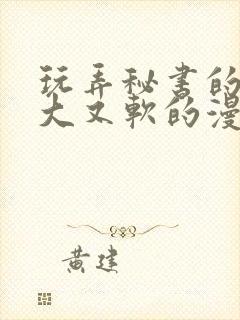 玩弄秘书的
大又软的漫
黄建